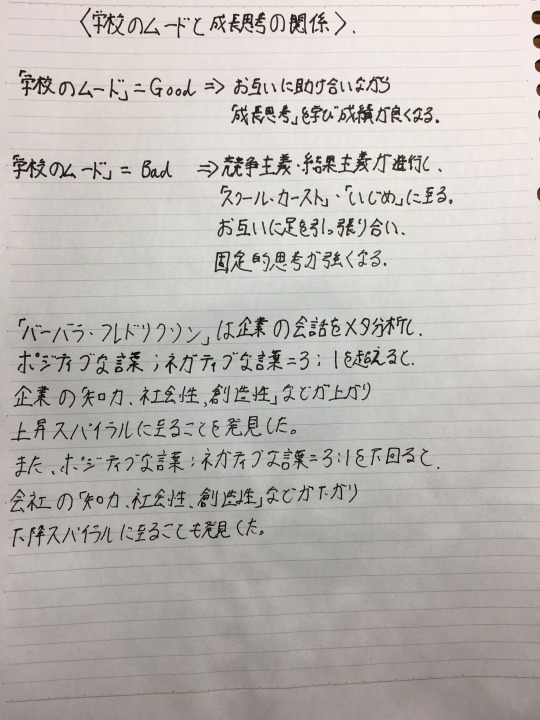 〈学校のムードと成長思考の関係〉.
「学校のムード」=Good ⇒ お互いに助け合いながら
「成長思考」を学び成績が良くなる.
「学校のムード」= Bad ⇒競争主義・結果主義が進行し、
「スクール・カースト」・「いじめ」に至る。
お互いに足を引っ張り合い、
固定的思考が強くなる.
「バーバラ・フレドリクソン」は企業の会話をメタ分析し、
ポジティブな言葉;ネガティブな言葉=3;1を超えると、
企業の「知力、社会性、創造性」などが上がり
上昇スパイラルに至ることを発見した。
また、ポジティブな言葉;ネガティブな言葉=3:1を下回ると、
会社の「知力、社会性、創造性」などが下がり
下降スパイラルに至ることも発見した。